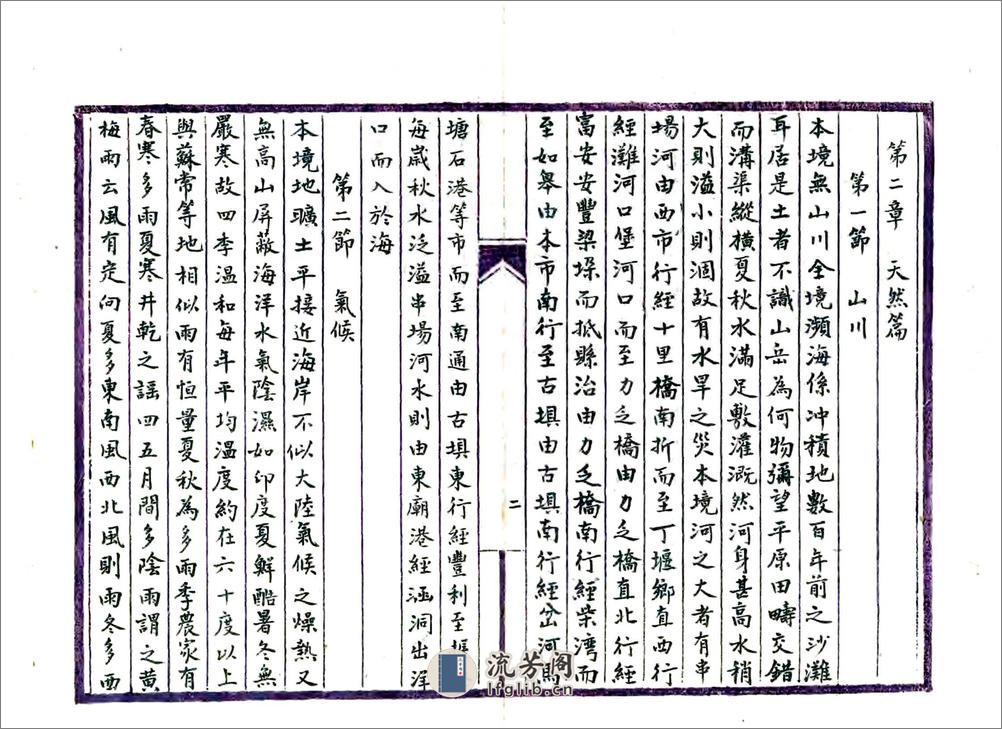 第二章　天然篇
第一節　山川
本境無山川全境瀕海係冲積地數百年前之沙灘
耳居是土者不識山岳為何物彌望平原田疇交錯
而溝渠縱橫夏秋水滿足敷灌溉然河身甚高水稍
大則溢小則涸故有水旱之災本境河之大者有串
場河由西市行經十里橋南折而至丁堰鄉直西行
經灘河口堡河口而至力乏橋由力乏橋直北行經
富安安豐梁垛而抵縣治由力乏橋南行經柴灣而
至如皋由本市南行至古垻由古垻南行經岔河
二
塘石港等市而至南通由古垻東行經豐利至
每歲秋水泛溢串場河水則由東廟港經涵洞出洋
口而入於海
第二節　氣候
本境地曠土平接近海岸不似大陸氣候之燥熱又
無高山屏蔽海洋水氣陰濕如印度夏鮮酷暑冬無
嚴寒故四季溫和每年平均溫度約在六十度以上
與蘇常等地相似雨有恒量夏秋為多雨季農家有
春寒多雨夏寒井乾之謡四五月間多陰雨謂之黄
梅雨云風有定向夏多東南風西北風則雨冬多西
流芳阁
lfglib.cn